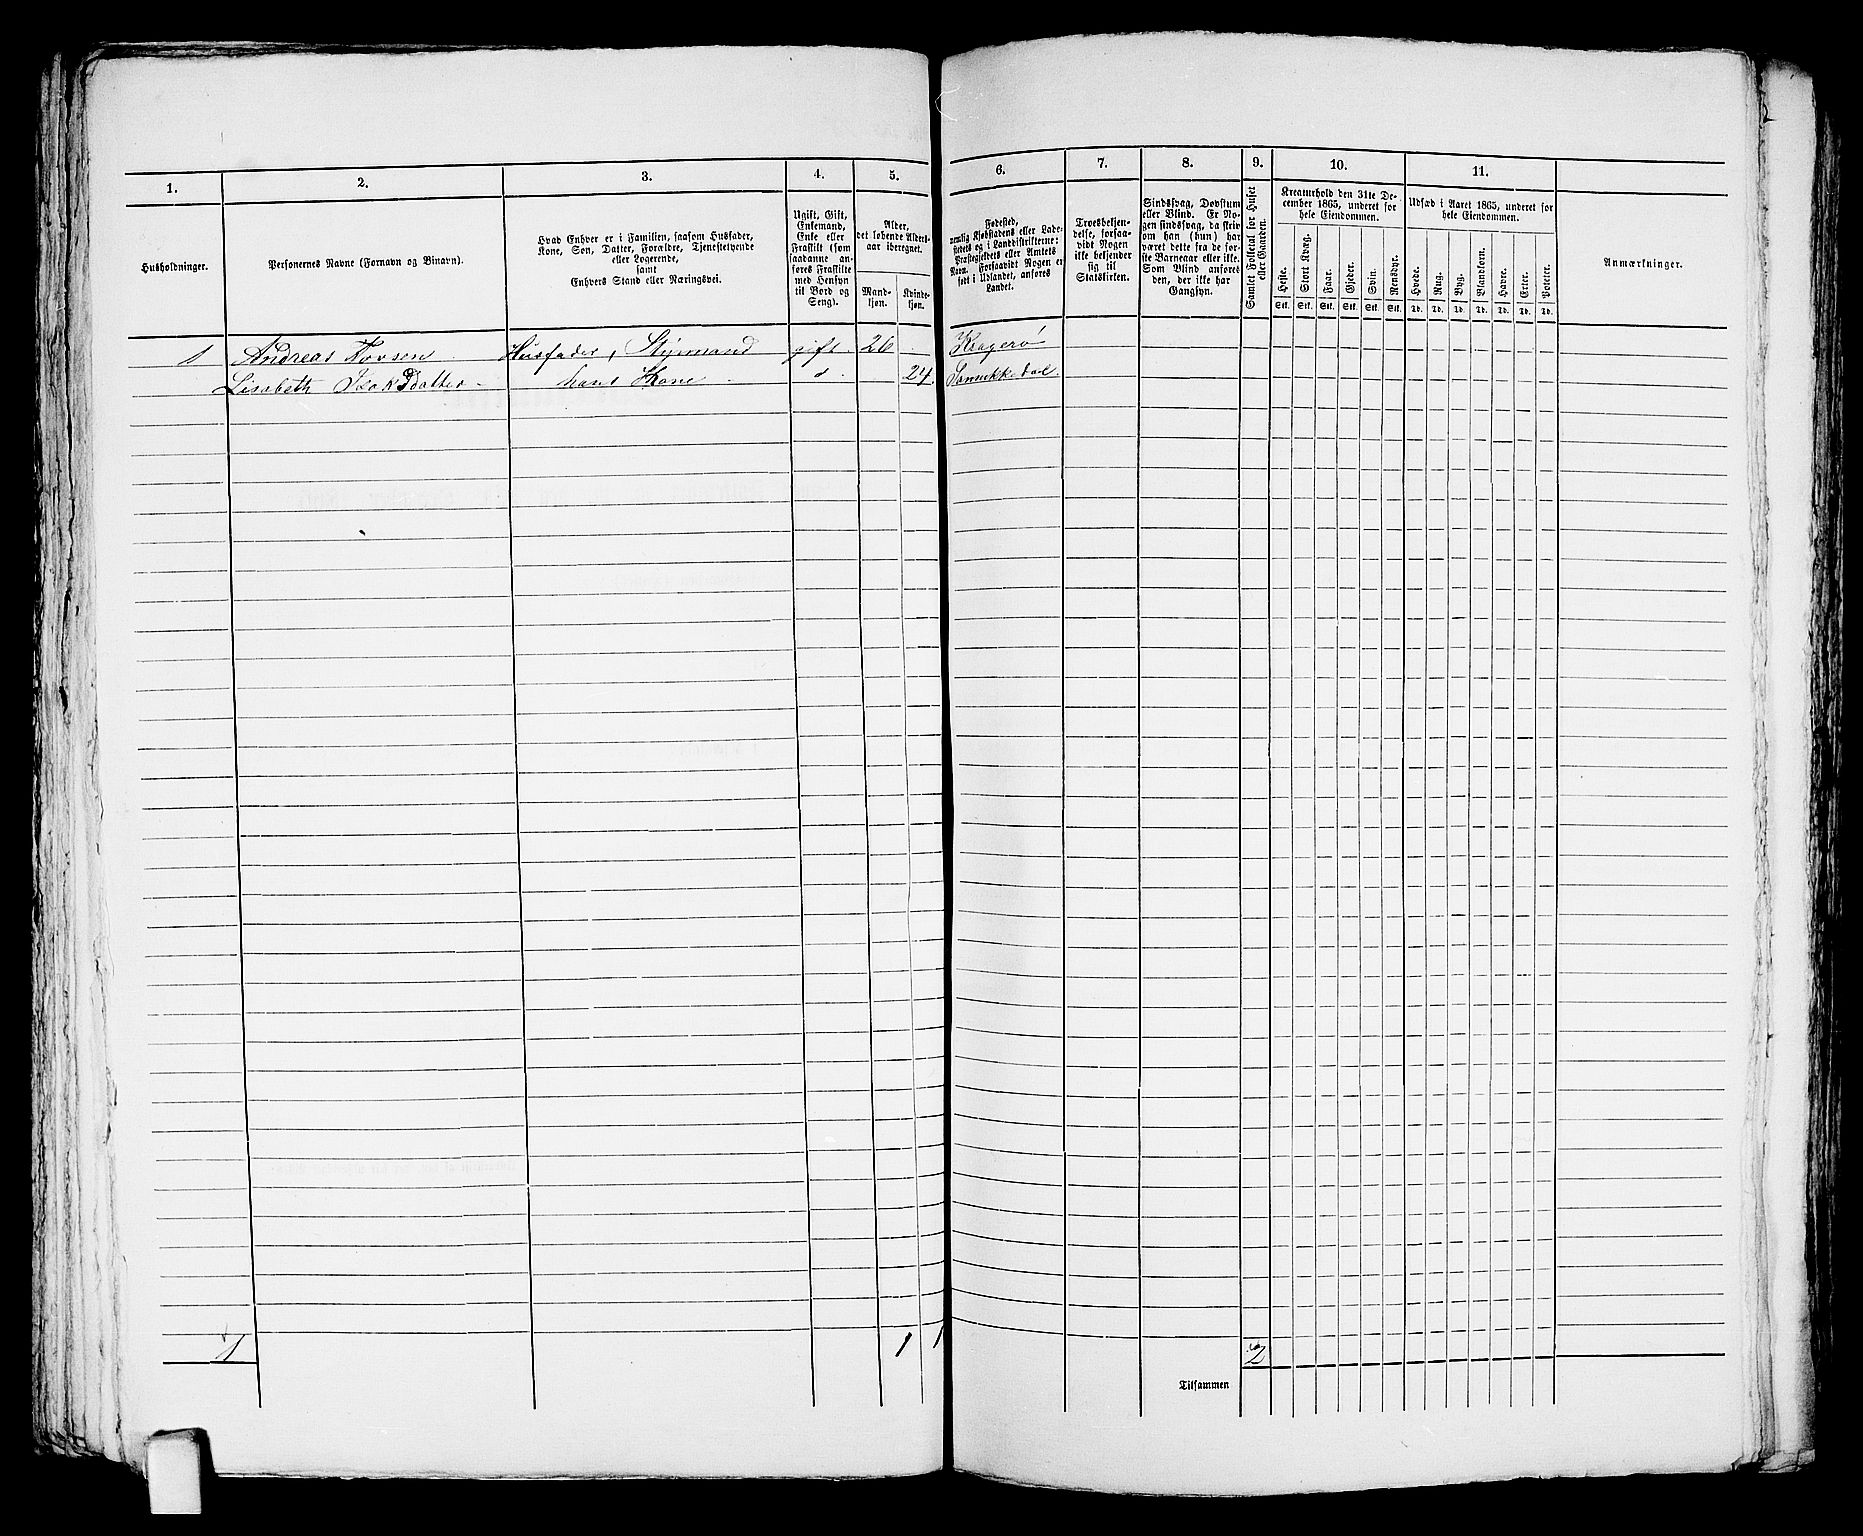 1. 2. 3. 4. 5. 6. 7. 8. 9. 10. 11.
Husholdninger.
Personernes Navne (Fornavn og Binavn).
Hvad Enhver er i Familien, saasom Husfader,
Kone, Søn, Datter, Forældre, Tjenestetyende
eller Logerende,
samt
Enhvers Stand eller Næringsvei.
Ugift, Gift,
Enkemand,
Enke eller
Fraskilt (som
saadanne an-
føres Fraskilte
med Hensyn
til Bord og
Seng).
Alder,
det løbende Alders-
aar iberegnet.
Mand-
kjøn.
Kvinde-
kjøn.
Fødested,
nemlig Kjøbstadens eller Lade-
stedets og i Landdistrikterne:
Præstegjeldets eller Amtets
Navn. Forsaavidt Nogen er
født i Udlandet, anføres
Landet.
Troesbekjen-
delse, forsaa-
vidt Nogen
ikke bekjender
sig til
Statskirken.
Sindssvag, Døvstum
eller Blind. Er No-
gen sindssvag, da skriv
om han (hun) har
været dette fra de før-
ste Barneaar eller ikke.
Som Blind anføres
den, der ikke har
Gangsyn.
Samlet Folketal for Huset
eller Gaarden.
Kreaturhold den 31te De-
cember 1865, underet for
hele Eiendommen.
Heste. Stort Kvæg. Faar. Gjeder. Svin. Rensdyr.
Stk. Stk. Stk. Stk. Stk. Stk.
Udsæd i Aaret 1865, underet for
hele Eiendommen.
Hvede. Rug. Byg. Blandkorn. Havre. Erter. Poteter.
Td. Td. Td. Td. Td. Td. Td.
Anmærkninger.
1 Andreas Husfader, Styrmand gift. 26 Kragerø
Lisabeth hans Kone 24. Sannikkedal.
1 1 1 2
Tilsammen